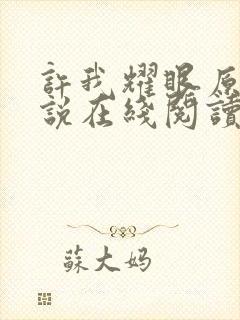 許我耀眼原
說在綫閱讀
蘇大妈